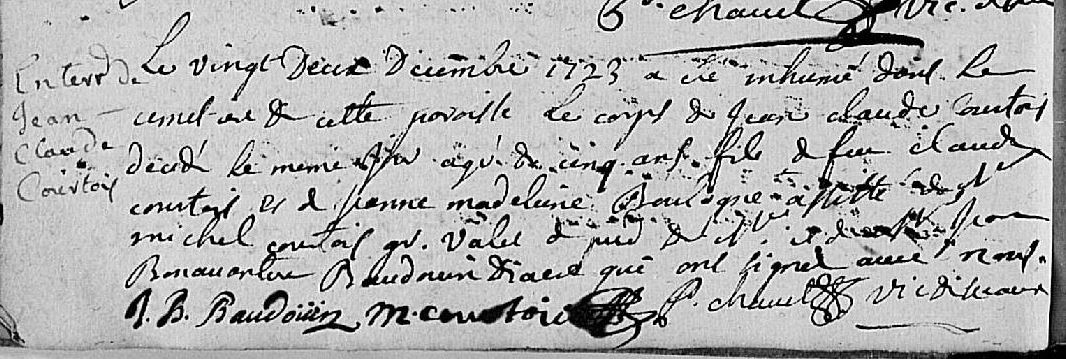 P. chauvel vic.
Enterr. de
Jean
Claude
Courtois
Le vingt Deux Decembre 1723 a ete inhumé dans le
cimetiere de cette paroisse le corps de Jean claude Courtois
decedé le meme jour agé de cinq ans fils de feu claude
courtois et de jeanne madeleine Boulogne assisté de
michel courtois gr. valet de pied de et de Jean
Bonaventure Baudouin Diacre qui ont signé avec nous.
J. B. Baudoüin M. courtois P. chauvel